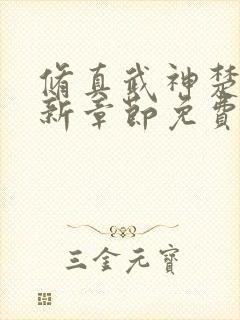 脩真武神楚
新章節免費
三金元寶